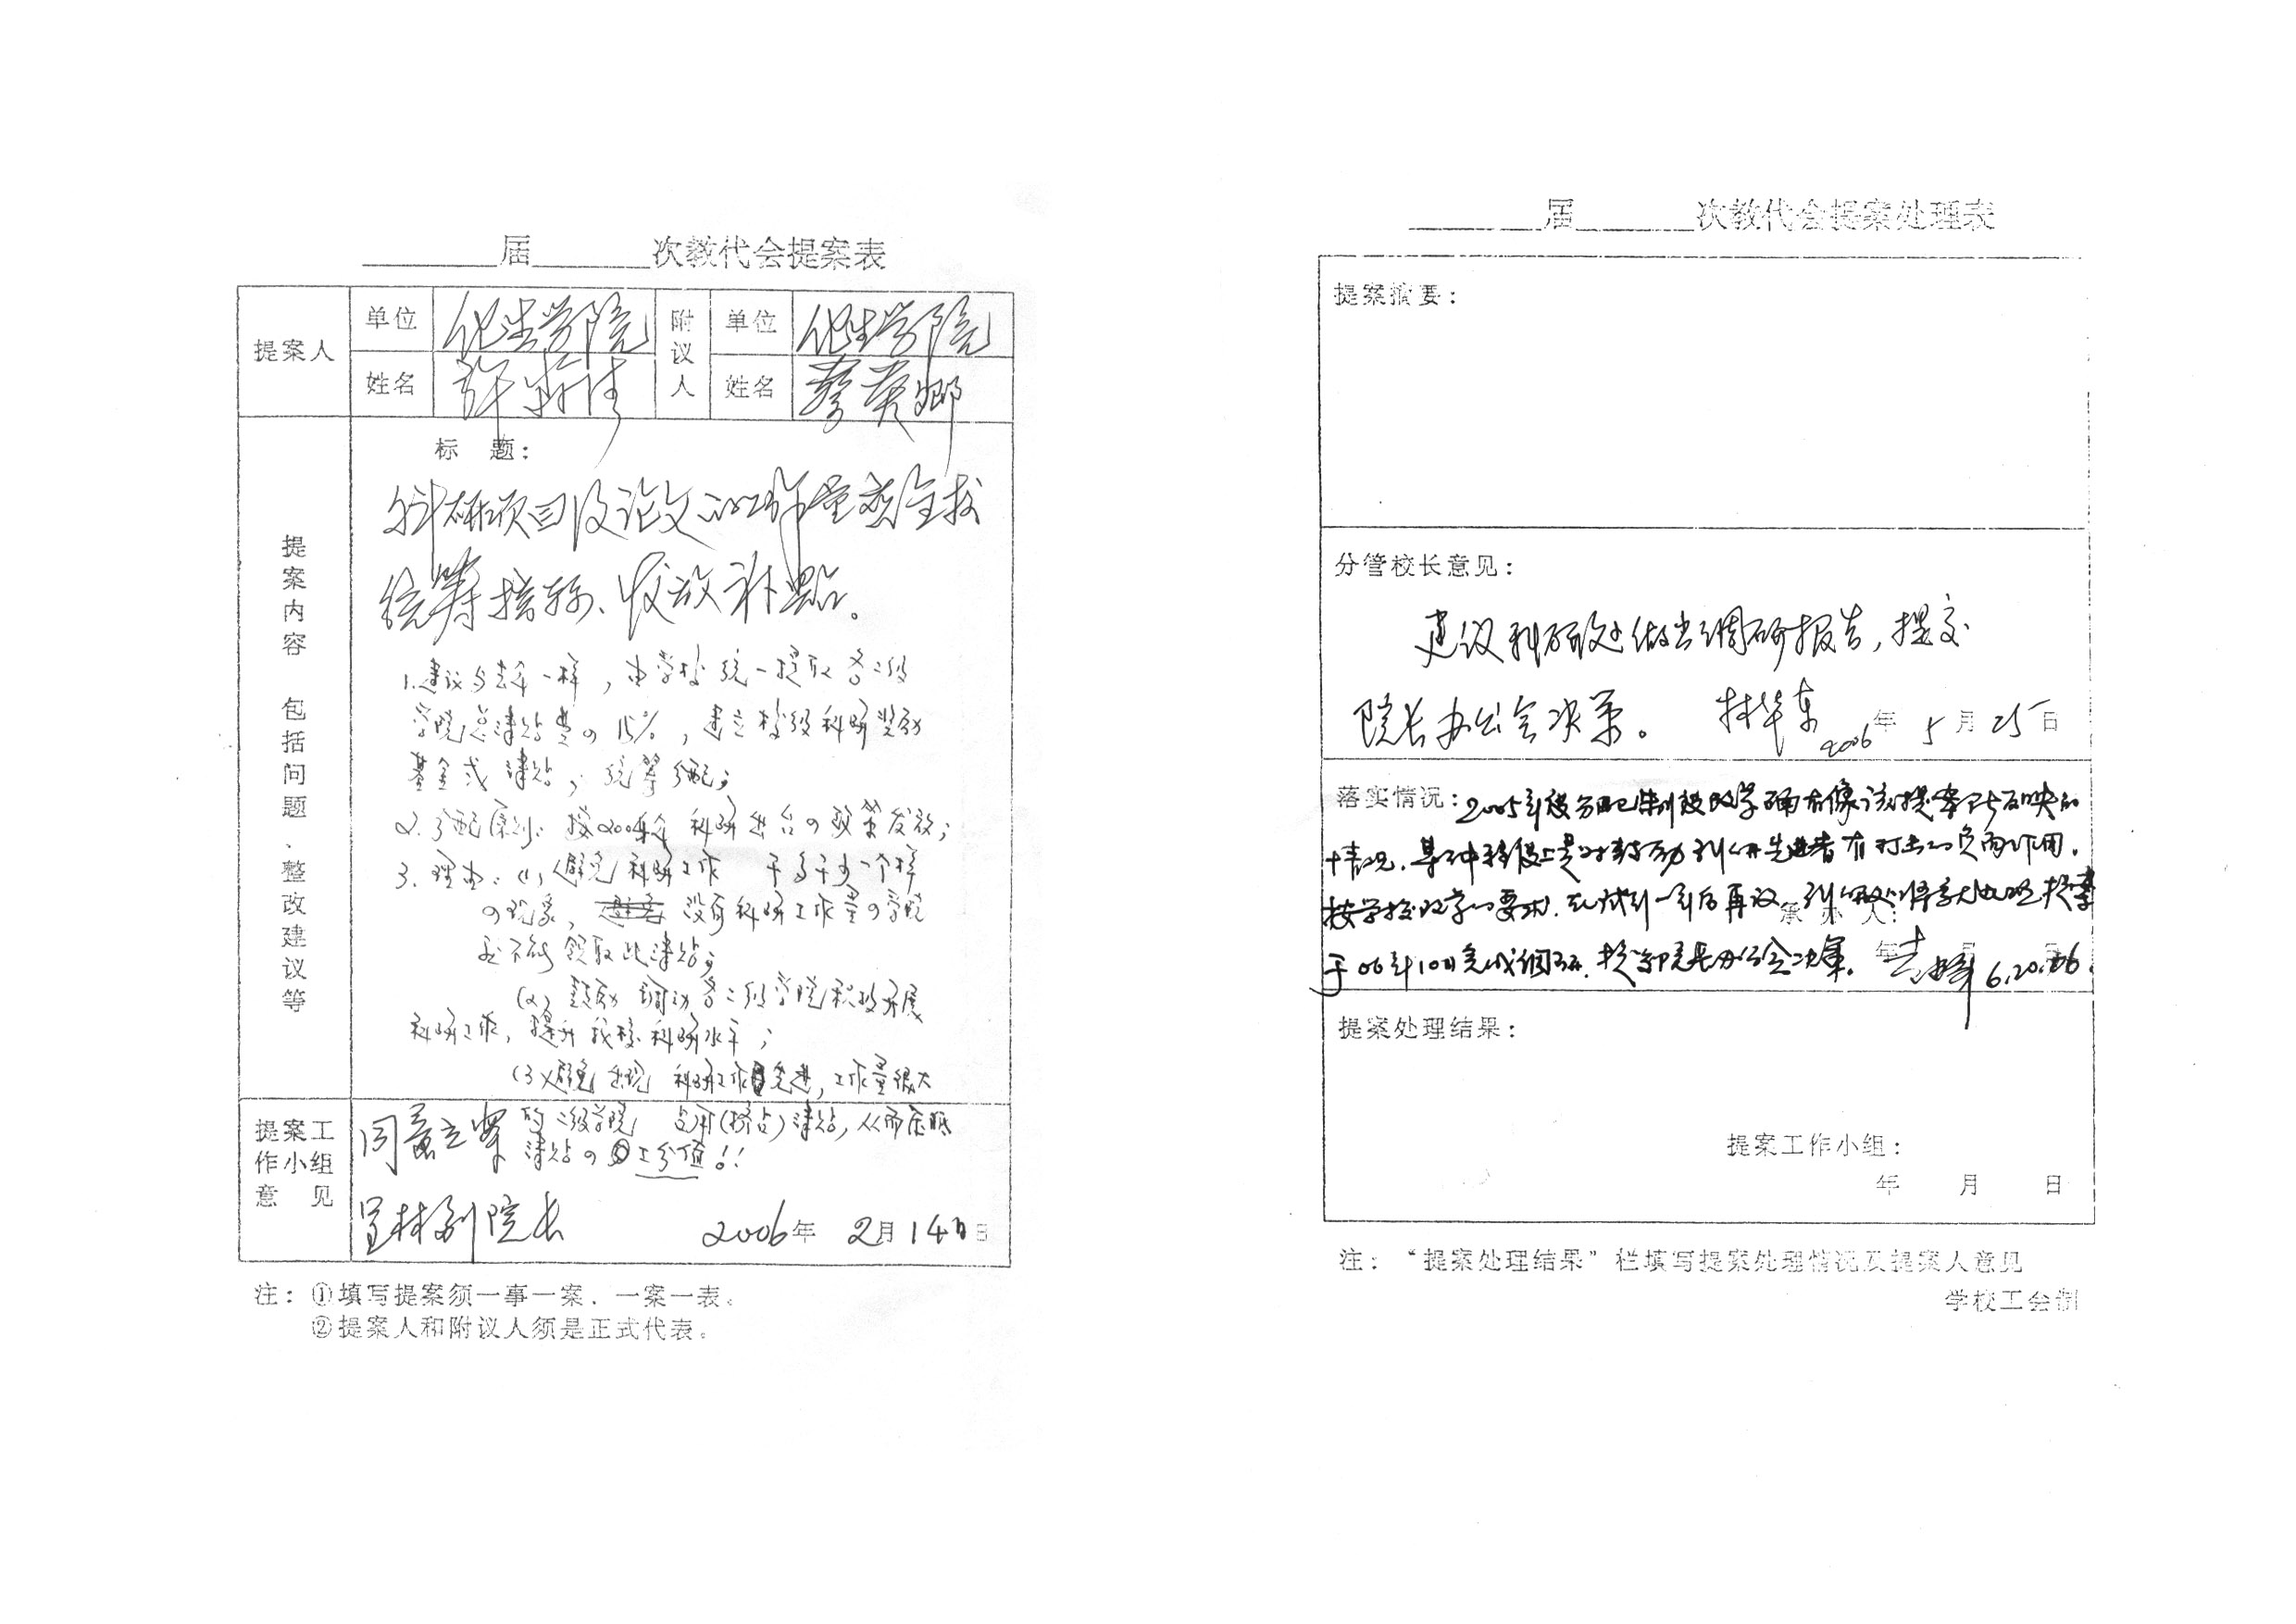 届 次教代会提案表
提案人 单位 化生学院 附议人 单位 化生学院
姓名 许 姓名 蔡英卿
提案内容 包括问题、整改建议等
标 题：
科研项目及论文的工作量应全校
统筹指标、发放补贴。
1.建议与去年一样，由学校统一提取各二级
学院总津贴费の15%，建立校级科研奖励
基金或津贴，统筹分配；
2.分配原则：按2004年 科研出台の政策发放；
3.理由：(1)避免科研工作 干多干少一个样
の现象， 没有科研工作量の学院
也不能领取此津贴；
(2)鼓励调动各二级学院积极开展
科研工作，提升我校科研水平；
(3)避免出现 科研工作先进，工作量很大
的二级学院 占用(挤占)津贴，从而压低
津贴の工分值!!
提案工作小组意 见
同意立案
呈林副院长
2006年 2月14日
注：①填写提案须一事一案．一案一表。
②提案人和附议人须是正式代表。
届 次教代会提案处理表
提案摘要：
分管校长意见：
建议科研处做出调研报告，提交
院长办公会决策。 林华东 2006年 5月25日
落实情况：2005年校分配制度改革确有像该提案所反映的
情况．某种程度上是对 科研先进者有打击的负面作用．
按学校改革的要求．先试行一年后再议．科研处将
于06年10月完成调研．提交院长办公会决策． 6.20.06.
承办人：
年 月 日
提案处理结果：
提案工作小组：
年 月 日
注：“提案处理结果”栏填写提案处理情况及提案人意见
学校工会制